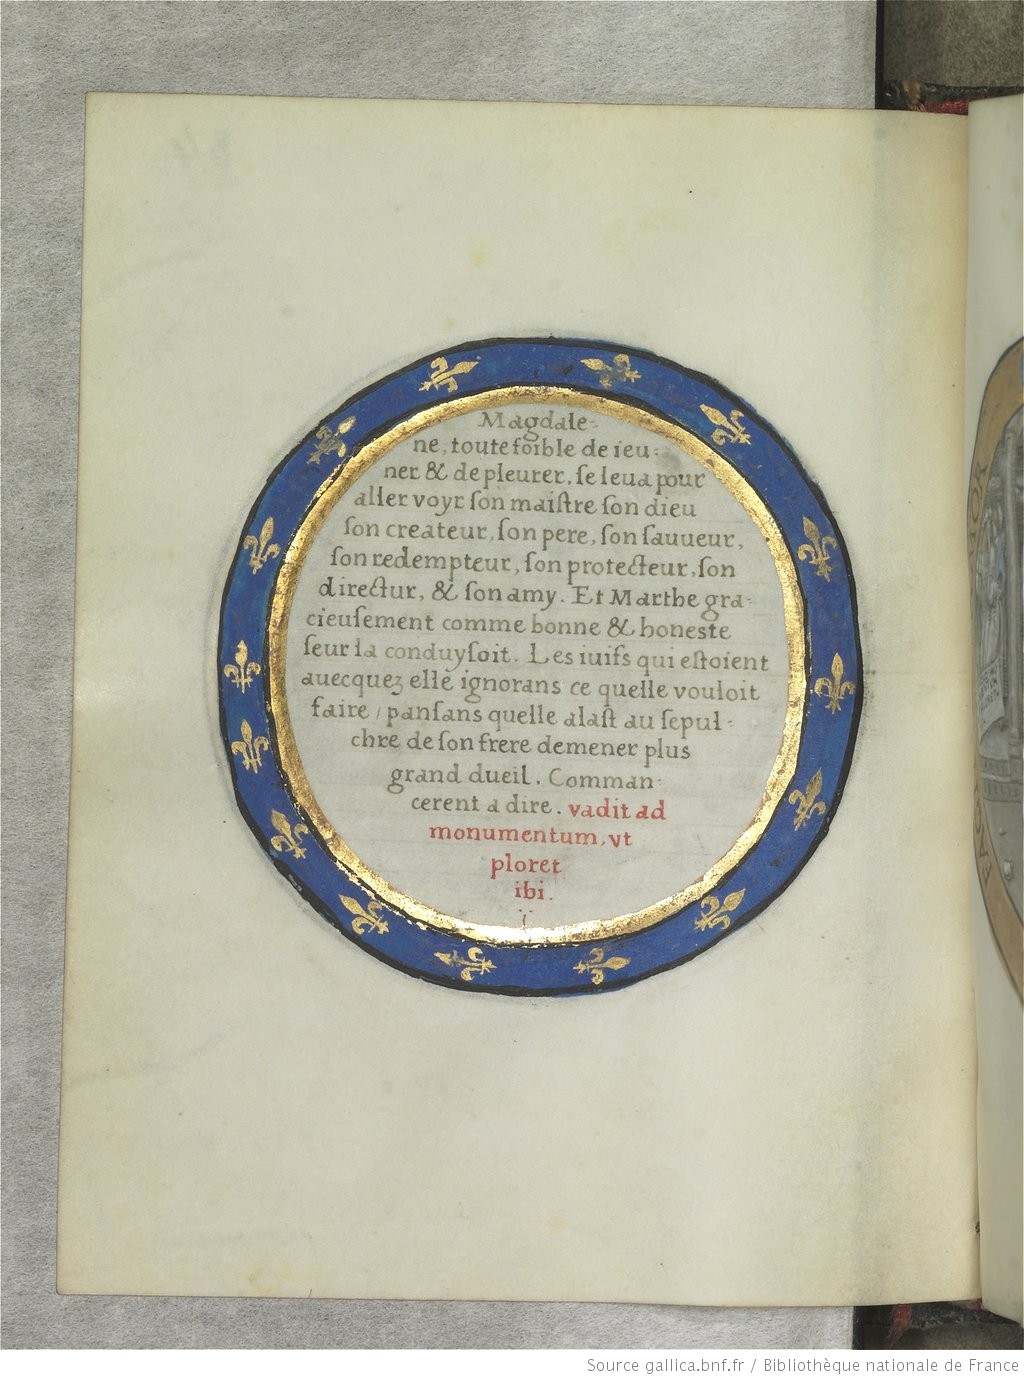 Magdale-
ne, toute foible de ieu-
ner & de pleurer, se leua pour
aller voyr son maistre son dieu
son createur, son pere, son sauueur,
son redempteur, son protecteur, son
directur, & son amy. Et Marthe gra-
cieusement comme bonne & honeste
seur la conduysoit. Les iuifs qui estoient
auecquez elle ignorans ce quelle vouloit
faire, pansans quelle alast au sepul-
chre de son frere demener plus
grand dueil. Comman-
cerent a dire. vadit ad
monumentum, vt
ploret
ibi.
Source gallica.bnf.fr / Bibliothèque nationale de France